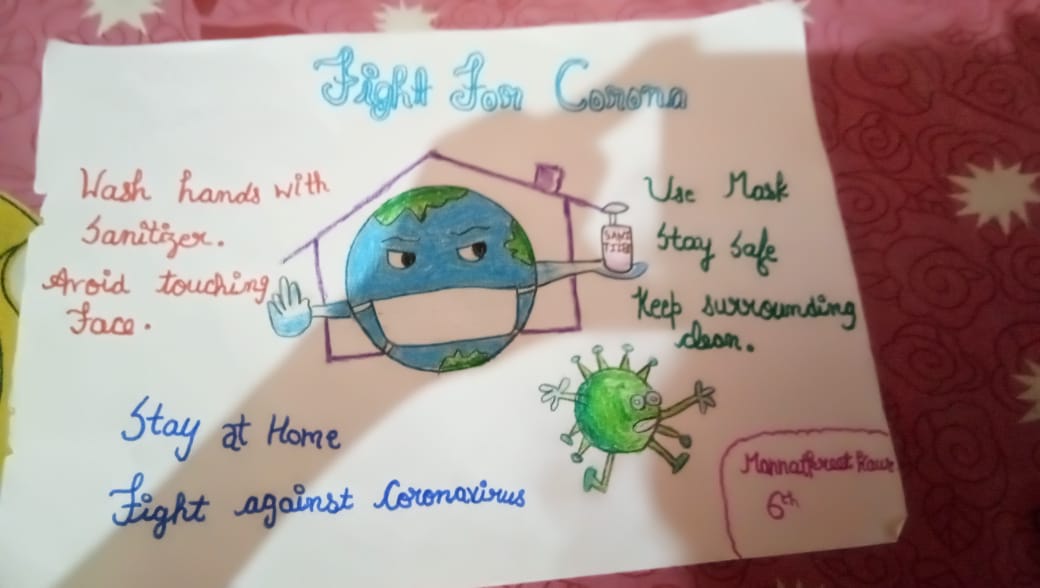 Fight For Corona
Wash hands with
Sanitizer.
Avoid touching
Face.
SANI
TIZER
Use Mask
Stay Safe
Keep surrounding
clean.
Stay at Home
Fight against Coronavirus
Mannatpreet Kaur
6th